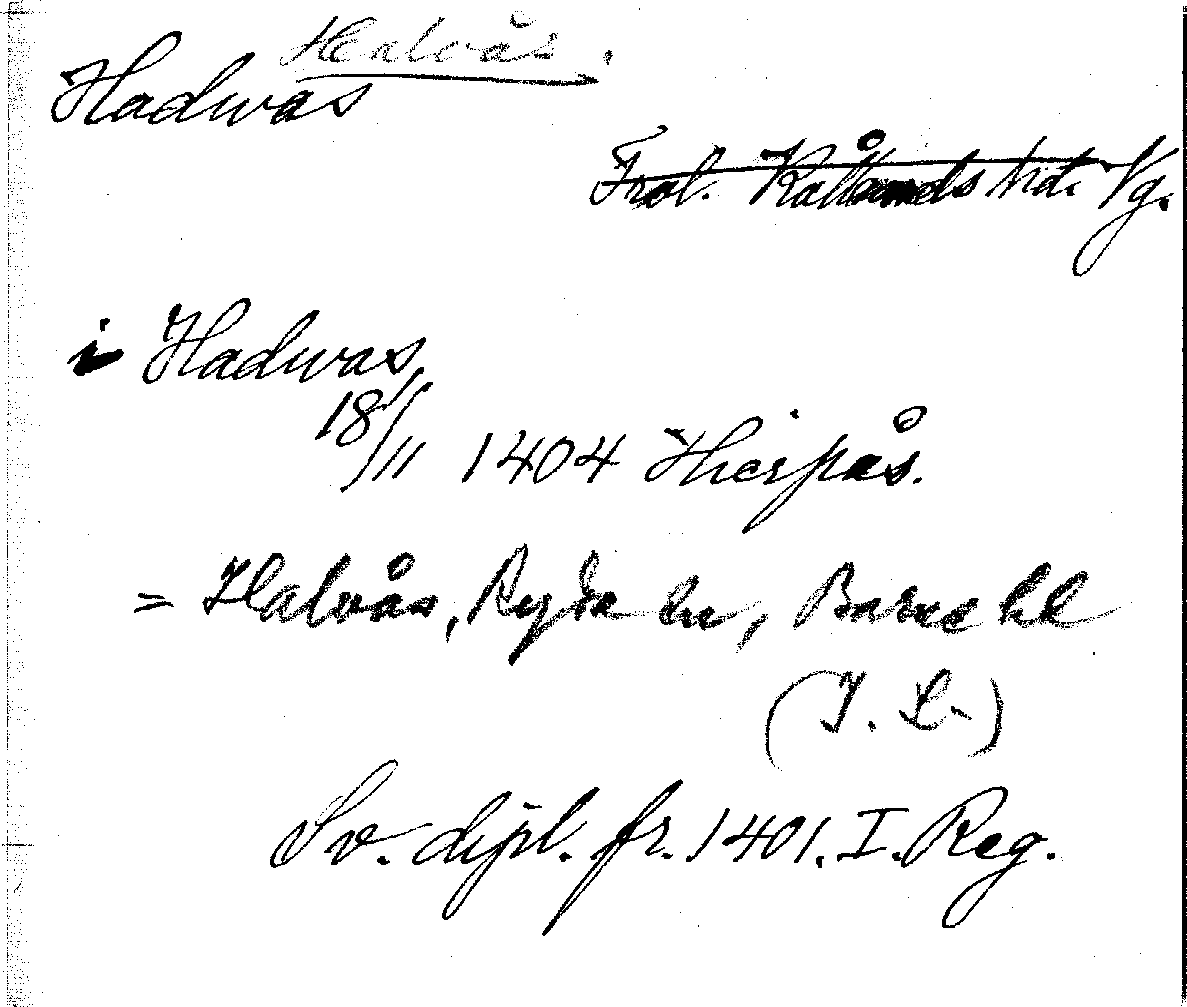 Halvås.
Hadwas
Trol. Kållands hd. Vg.
i Hadwas
18/11 1404 Hierpås.
= Halvås, Ryda sn, Barne hd
(I. L.)
Sv. dipl. fr. 1401. I. Reg.